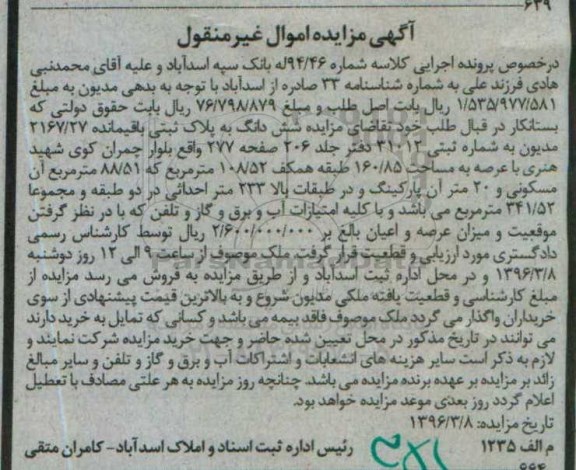 ۶۳۹
آگهی مزایده اموال غیر منقول
درخصوص پرونده اجرایی کلاسه شماره ۹۴/۴۶له بانک سپه اسدآباد و علیه آقای محمدنبی
هادی فرزند علی به شماره شناسنامه ۳۳ صادره از اسدآباد با توجه به بدهی مدیون به مبلغ
۱/۵۳۵/۹۷۷/۵۸۱ ریال بابت اصل طلب و مبلغ ۷۶/۷۹۸/۸۷۹ ریال بابت حقوق دولتی که
بستانکار در قبال طلب خود تقاضای مزایده شش دانگ به پلاک ثبتی باقیمانده ۲۱۶۷/۲۷
مدیون به شماره ثبتی ۳۱۰۱۲ دفتر جلد ۲۰۶ صفحه ۲۷۷ واقع بلوار چمران کوی شهید
هنری با عرصه به مساحت ۱۶۰/۸۵ طبقه همکف ۱۰۸/۵۲ مترمربع که ۸۸/۵۱ مترمربع آن
مسکونی و ۲۰ متر آن پارکینگ و در طبقات بالا ۲۳۳ متر احداثی در دو طبقه و مجموعا
۳۴۱/۵۲ مترمربع می باشد و با کلیه امتیازات آب و برق و گاز و تلفن که با در نظر گرفتن
موقعیت و میزان عرصه و اعیان بالغ بر ۲/۶۰۰/۰۰۰/۰۰۰ ریال توسط کارشناس رسمی
دادگستری مورد ارزیابی و قطعیت قرار گرفت. ملک موصوف از ساعت ۹ الی ۱۲ روز دوشنبه
۱۳۹۶/۳/۸ و در محل اداره ثبت اسدآباد و از طریق مزایده به فروش می رسد مزایده از
مبلغ کارشناسی و قطعیت یافته ملکی مدیون شروع و به بالاترین قیمت پیشنهادی از سوی
خریداران واگذار می گردد ملک موصوف فاقد بیمه می باشد و کسانی که تمایل به خرید دارند
می توانند در تاریخ مذکور در محل تعیین شده حاضر و جهت خرید مزایده شرکت نمایند و
لازم به ذکر است سایر هزینه های انشعابات و اشتراکات آب و برق و گاز و تلفن و سایر مبالغ
زائد بر مزایده بر عهده برنده مزایده می باشد. چنانچه روز مزایده به هر علتی مصادف با تعطیل
اعلام گردد روز بعدی موعد مزایده خواهد بود.
تاریخ مزایده: ۱۳۹۶/۳/۸
م الف ۱۲۳۵ رئیس اداره ثبت اسناد و املاک اسدآباد- کامران متقی